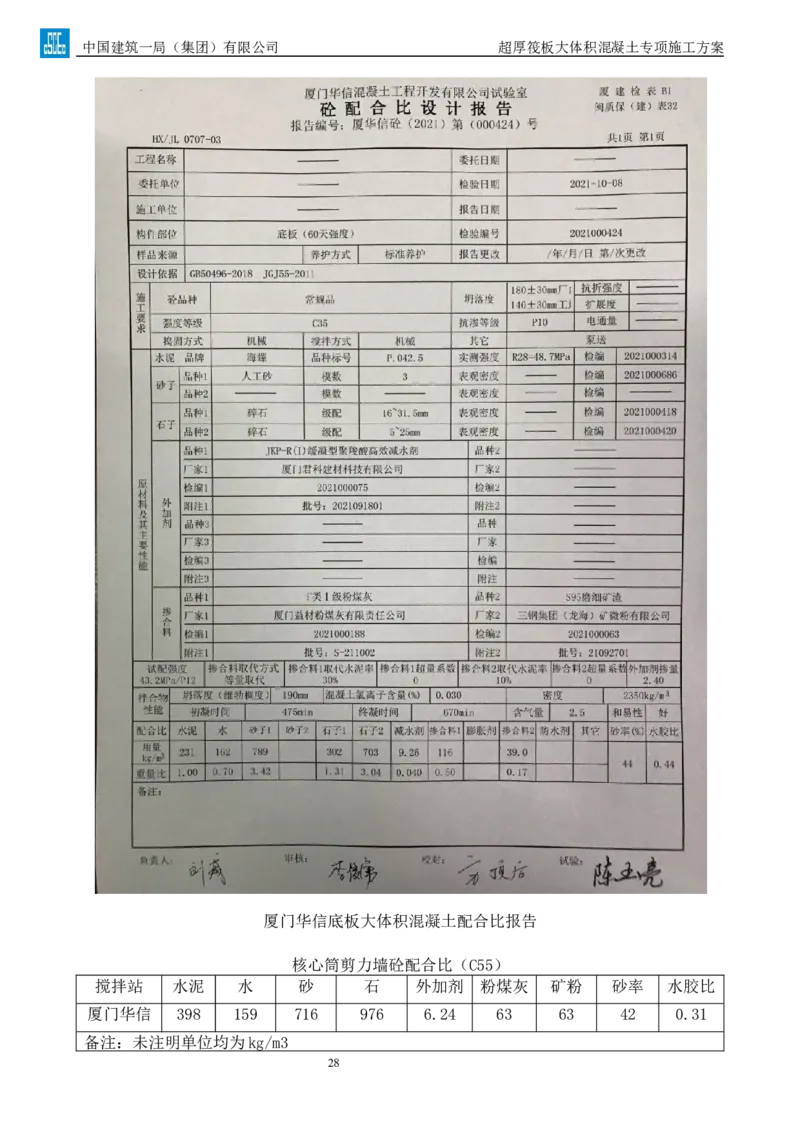 中国建筑一局（集团）有限公司 超厚筏板大体积混凝土专项施工方案
厦门华信混凝土工程开发有限公司试验室 厦建检表B1
砼配合比设计报告 闽质保（建）表32
报告编号：厦华信砼（2021）第（000424）号
HX/JL 0707-03 共1页 第1页
工程名称 —— 委托日期 ——
委托单位 —— 检验日期 2021-10-08
施工单位 —— 报告日期 ——
构件部位 底板（60天强度） 检验编号 2021000424
样品来源 养护方式 标准养护 报告更改 /年/月/日 第/次更改
设计依据 GB50496-2018 JGJ55-2011
施工要求 砼品种 常规品 坍落度 180±30mm 140±30mm 抗折强度 —— 扩展度 ——
强度等级 C35 抗渗等级 P10 电通量 ——
捣固方式 机械 搅拌方式 机械 其它 泵送
原材料及其主要性能
水泥 品牌 海螺 品种标号 P.O42.5 实测强度 R28=48.7MPa 检编 2021000314
砂子 品种1 人工砂 模数 3 表观密度 —— 检编 2021000686
品种2 —— 模数 —— 表观密度 —— 检编 ——
石子 品种1 碎石 级配 16~31.5mm 表观密度 —— 检编 2021000418
品种2 碎石 级配 5~25mm 表观密度 —— 检编 2021000420
外加剂 品种1 JKP-R(I)缓凝型聚羧酸高效减水剂 品种2 ——
厂家1 厦门君科建材科技有限公司 厂家2 ——
检编1 2021000075 检编2 ——
附注1 批号：2021091801 附注2 ——
品种3 —— 品种 ——
厂家3 —— 厂家 ——
检编3 —— 检编 ——
附注3 —— 附注 ——
掺合料 品种1 F类Ⅰ级粉煤灰 品种2 S95磨细矿渣
厂家1 厦门益材粉煤灰有限责任公司 厂家2 三钢集团（龙海）矿微粉有限公司
检编1 2021000188 检编2 2021000063
附注1 批号：S-211002 附注2 批号：21092701
试配强度 掺合料取代方式 掺合料1取代水泥率 掺合料1超量系数 掺合料2取代水泥率 掺合料2超量系数 外加剂掺量
43.2MPa/P12 等量取代 30% 0 10% 0 2.40
拌合物性能 坍落度（维勃稠度） 190mm 混凝土氯离子含量(%) 0.030 密度 2350kg/m³
初凝时间 475min 终凝时间 670min 含气量 2.5 和易性 好
配合比 水泥 水 砂子1 砂子2 石子1 石子2 减水剂 掺合料1 膨胀剂 掺合料2 防水剂 其它 砂率(%) 水胶比
用量kg/m³ 231 162 789 302 703 9.26 116 39.0 44 0.44
重量比 1.00 0.70 3.42 1.31 3.04 0.040 0.50 0.17
备注：
负责人： 审核： 校定： 试验： 陈玉亮
厦门华信底板大体积混凝土配合比报告
核心筒剪力墙砼配合比（C55）
搅拌站 水泥 水 砂 石 外加剂 粉煤灰 矿粉 砂率 水胶比
厦门华信 398 159 716 976 6.24 63 63 42 0.31
备注：未注明单位均为kg/m3
28